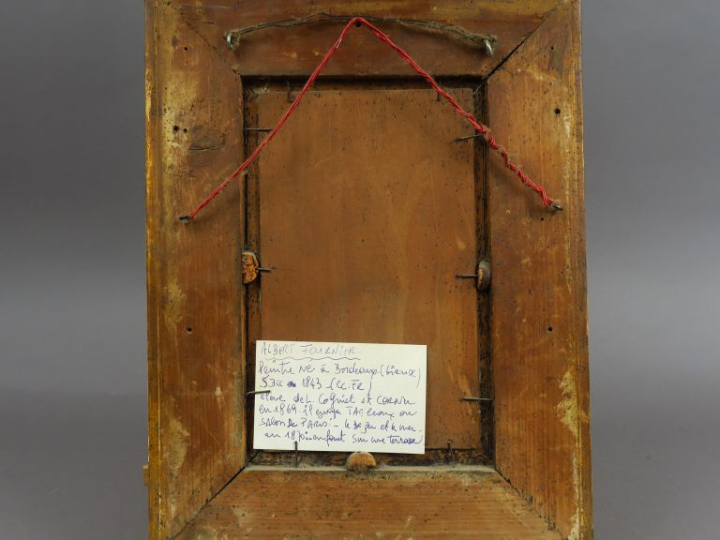 ALBERT FOURNIER
Peintre Né à Bordeaux (Gironde)
1843 (EC. FR)
eleve de L. Cogniet et CORNU
en 1869 il envoya TABLeaux au
SALON DE PARIS - le et
en 1870 enfant sur une terrasse